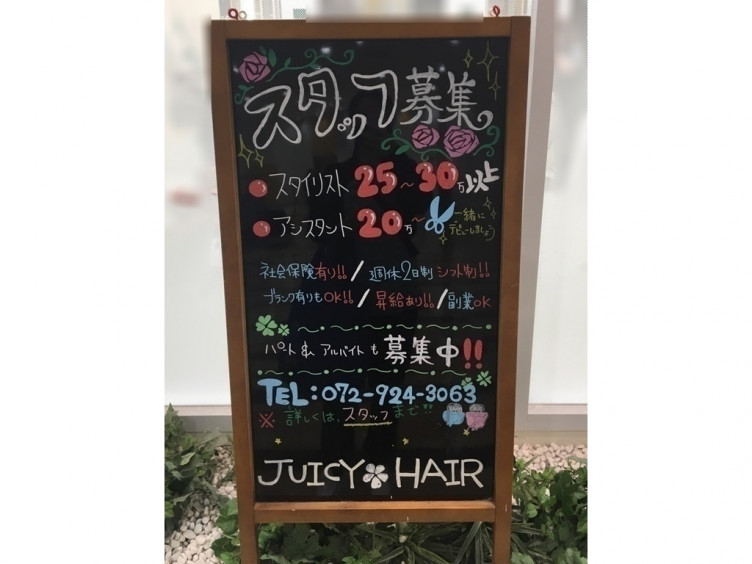 スタッフ募集
●スタイリスト 25～30万以上
●アシスタント 20万～ 一緒にデビューしましょう
社会保険有り!! / 週休2日制 シフト制!!
ブランク有りもOK!! / 昇給あり!! / 副業OK
パート& アルバイトも 募集中!!
TEL:072-924-3063
※ 詳しくは、スタッフまで!!
JUICY HAIR